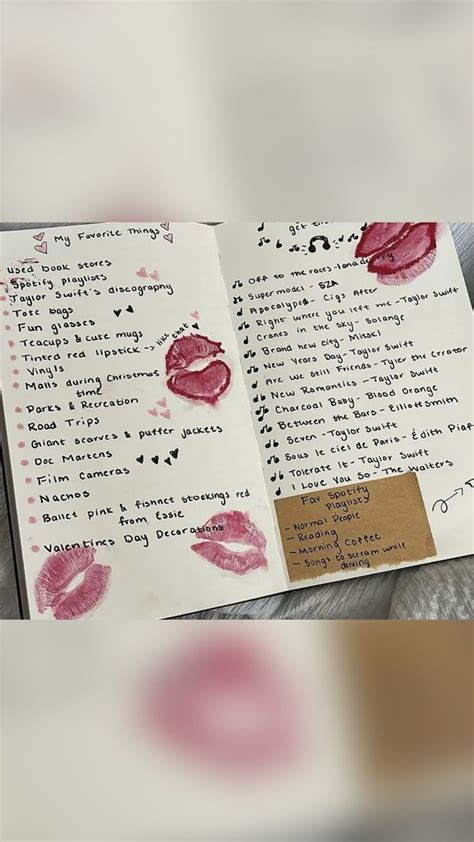 My Favorite Things
used book stores
Spotify playlists
Taylor Swift's discography
Tote bags
Fun glasses
Teacups & cute mugs
Tinted red lipstick → like that
Vinyls
Malls during Christmas
time
Parks & Recreation
Road Trips
Giant scarves & puffer jackets
Doc Martens
Film Cameras
Nachos
Ballet pink & fishnet stockings red
from Essie
Valentines Day Decorations
get
Off to the races - lana
Supermodel - SZA
Apocalypse - Cigs After
Right where you left me - Taylor Swift
Cranes in the sky - Solange
Brand new city - Mitski
New Years Day - Taylor Swift
Are we still Friends - Tyler the Creator
New Romantics - Taylor Swift
Charcoal Baby - Blood Orange
Between the Bars - Elliott Smith
Seven - Taylor Swift
Sous le ciel de Paris - Édith Piaf
Tolerate It - Taylor Swift
I Love You So - The Walters
Fav Spotify
Playlists
- Normal People
- Reading
- Morning Coffee
- Songs to scream while
driving